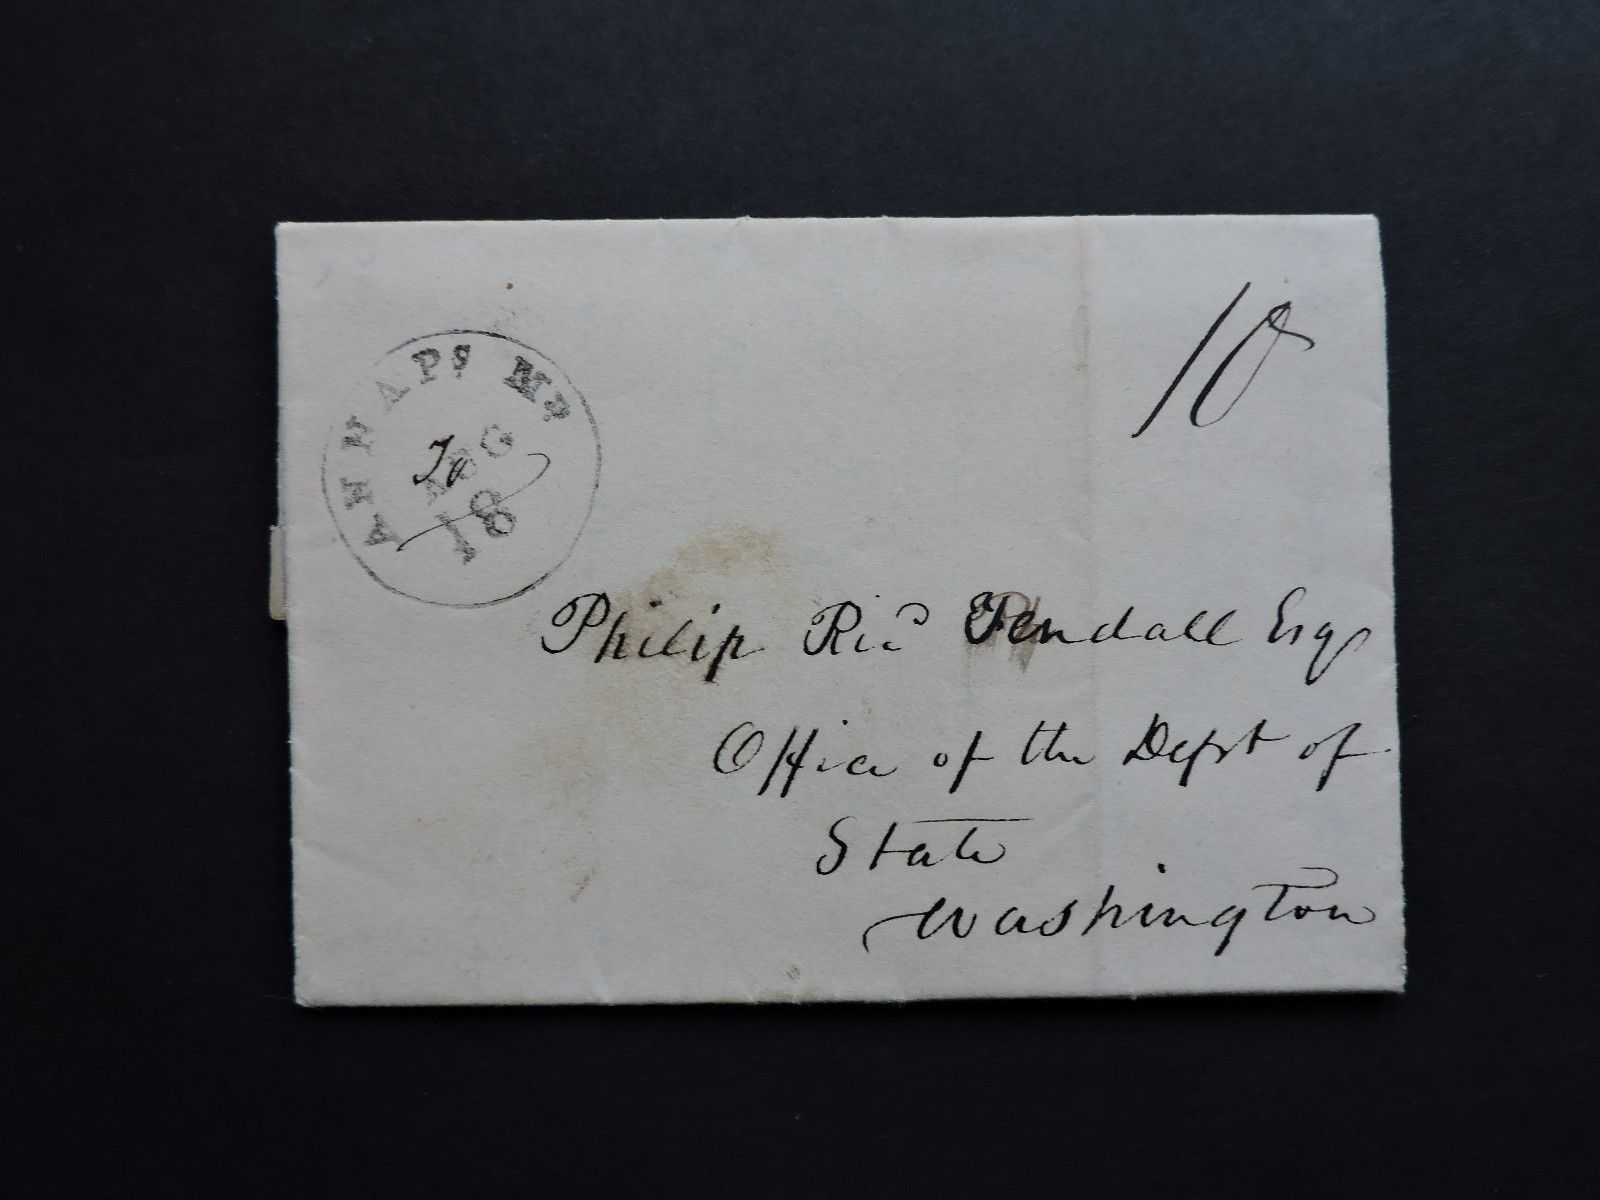 10
ANNAPS MD
To
AUG
18
Philip Ricd Fendall Esqr
Office of the Dept of
State
Washington